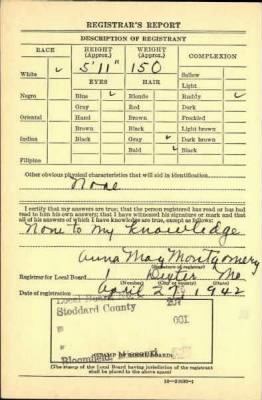 REGISTRAR'S REPORT
DESCRIPTION OF REGISTRANT
RACE HEIGHT (Approx.) WEIGHT (Approx.) COMPLEXION
White ✓ 5'11" 150 Sallow
EYES HAIR Light
Negro Blue ✓ Blonde Ruddy ✓
Gray Red Dark
Oriental Hazel Brown Freckled
Brown Black Light brown
Indian Black Gray ✓ Dark brown
Bald ✓ Black
Filipino
Other obvious physical characteristics that will aid in identification
None
I certify that my answers are true; that the person registered has read or has had
read to him his own answers; that I have witnessed his signature or mark and that
all of his answers of which I have knowledge are true, except as follows:
None to my knowledge
Anna May Montgomery
(Signature of registrar)
Registrar for Local Board 1 Dexter Mo
(Number) (City or county) (State)
Date of registration April 27, 1942
Local Board No.
Stoddard County
001
Bloomfield, Missouri
(STAMP OF LOCAL BOARD)
(The stamp of the Local Board having jurisdiction of the registrant
shall be placed in the above space)